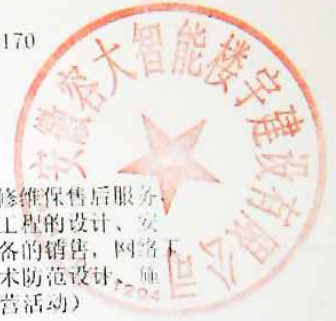 170
安徽容大智能楼宇建设有限公司
修维保售后服务、
工程的设计、安
备的销售，网络工
术防范设计、施
营活动）
1204